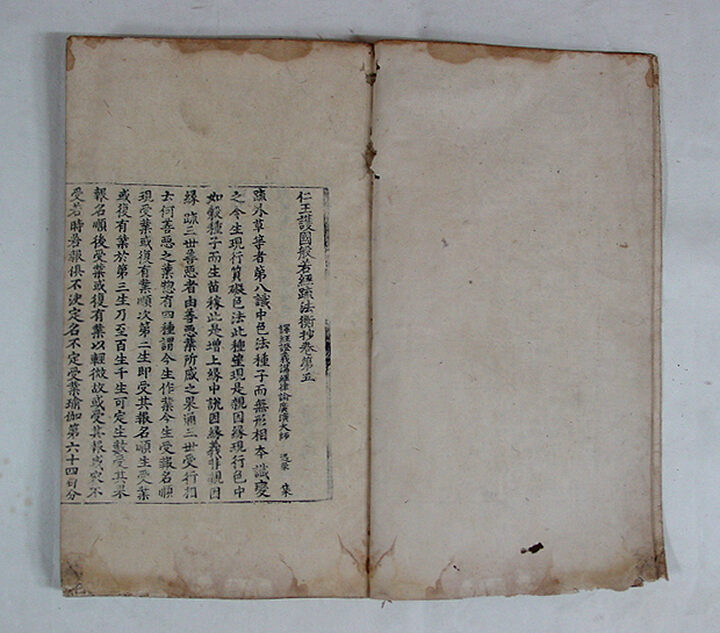 仁王護國般若經疏法衡抄卷第五
譯經證義講經律論廣演大師 遇榮 集
疏外草等者第八識中色法種子而無形相本識變
之今生現行質礙色法此種望現是親因緣現行色中
如穀種子而生苗稼此是增上緣中說因緣義非親因
緣 疏三世善惡者由善惡業所感之果通三世受行相
云何善惡之業惣有四種謂今生作業今生受報名順
現受業或復有業順次第二生即受其報名順生受業
或復有業於第三生乃至百生千生可定生數受其果
報名順後受業或復有業以輕微故或受其報或定不
受若時若報俱不決定名不定受業瑜伽第六十四句分